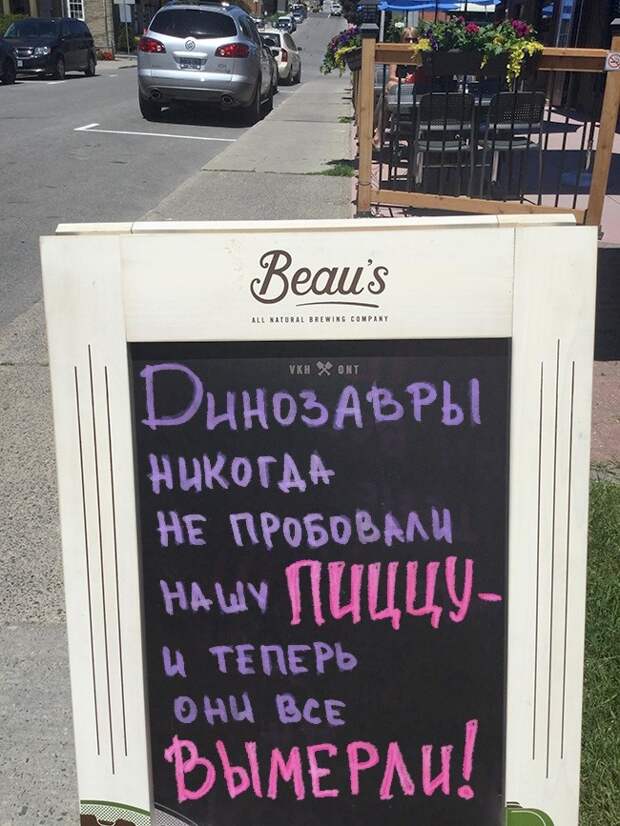 Beau's
ALL NATURAL BREWING COMPANY
VKH ONT
DИНОЗАВРЫ
НИКОГДА
НЕ ПРОБОВАЛИ
НАШУ ПИЦЦУ-
И ТЕПЕРЬ
ОНИ ВСЕ
ВЫМЕРЛИ!